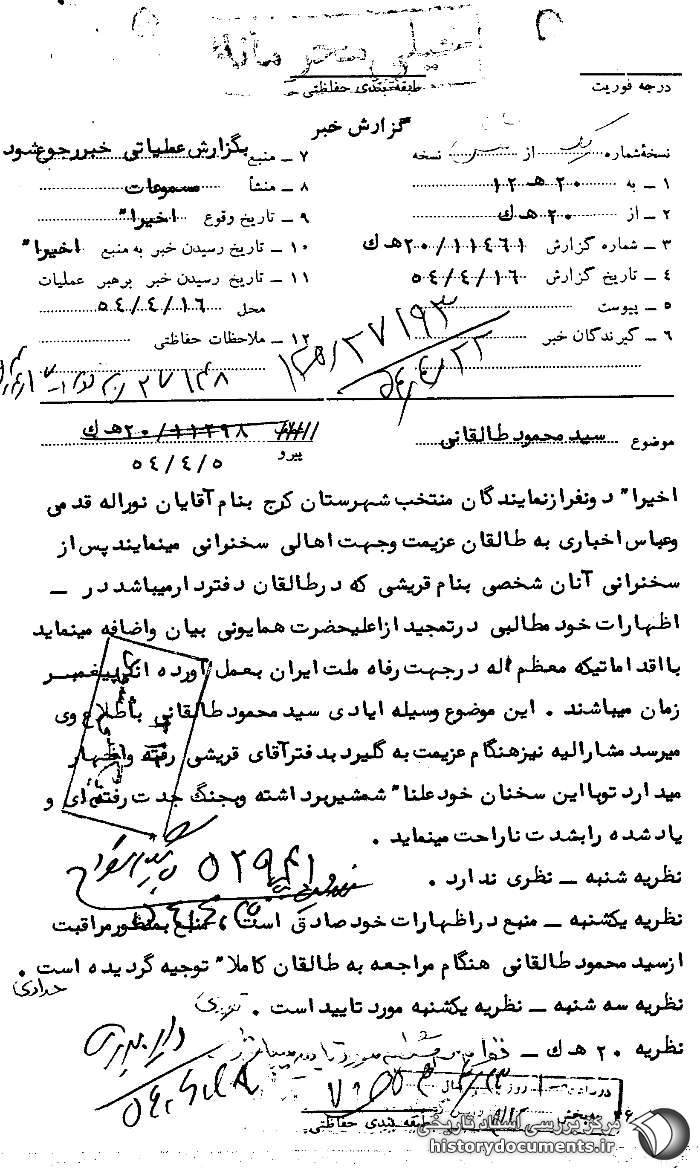 خیلی محرمانه
درجه فوریت
طبقه بندی حفاظتی
گزارش خبر
نسخهٔ شماره از نسخه
۱ ـ به ۲۰ هـ ۱۲
۲ ـ از ۲۰ هـ ك
۳ ـ شماره گزارش ۲۰/۱۱٤٦۱ هـ ك
٤ ـ تاریخ گزارش ٥٤/٤/۱٦
٥ ـ پیوست
٦ ـ گیرندگان خبر
۷ ـ منبع بگزارش عملیاتی خبر رجوع شود
۸ ـ منشأ مسموعات
۹ ـ تاریخ وقوع اخیرا"
۱۰ ـ تاریخ رسیدن خبر به منبع اخیرا"
۱۱ ـ تاریخ رسیدن خبر برهبر عملیات
محل ٥٤/٤/۱٦
۱۲ ـ ملاحظات حفاظتی
موضوع سید محمود طالقانی
پیرو ۲۰/۱۱۲۹۸ هـ ك
٥٤/٤/٥
اخیرا" دونفر از نمایندگان منتخب شهرستان کرج بنام آقایان نوراله قدمی
وعباس اخباری به طالقان عزیمت وجهت اهالی سخنرانی مینمایند پس از
سخنرانی آنان شخصی بنام قریشی که در طالقان دفتردار میباشد در ـ
اظهارات خود مطالبی در تمجید از اعلیحضرت همایونی بیان واضافه مینماید
با اقداماتیکه معظم له در جهت رفاه ملت ایران بعمل آورده اند پیغمبر
زمان میباشند . این موضوع وسیله ایادی سید محمود طالقانی باطلاع وی
میرسد مشارالیه نیز هنگام عزیمت به گلیرد بدفتر آقای قریشی رفته واظهار
میدارد توبا این سخنان خود علنا" شمشیر برداشته وبجنگ جدت رفته ای و
یاد شده را بشدت ناراحت مینماید .
نظریه شنبه ـ نظری ندارد .
نظریه یکشنبه ـ منبع در اظهارات خود صادق است ، منبع بمنظور مراقبت
از سید محمود طالقانی هنگام مراجعه به طالقان کاملا" توجیه گردیده است .
نظریه سه شنبه ـ نظریه یکشنبه مورد تایید است .
نظریه ۲۰ هـ ك ـ
طبقه بندی حفاظتی
مرکز بررسی اسناد تاریخی
historydocuments.ir